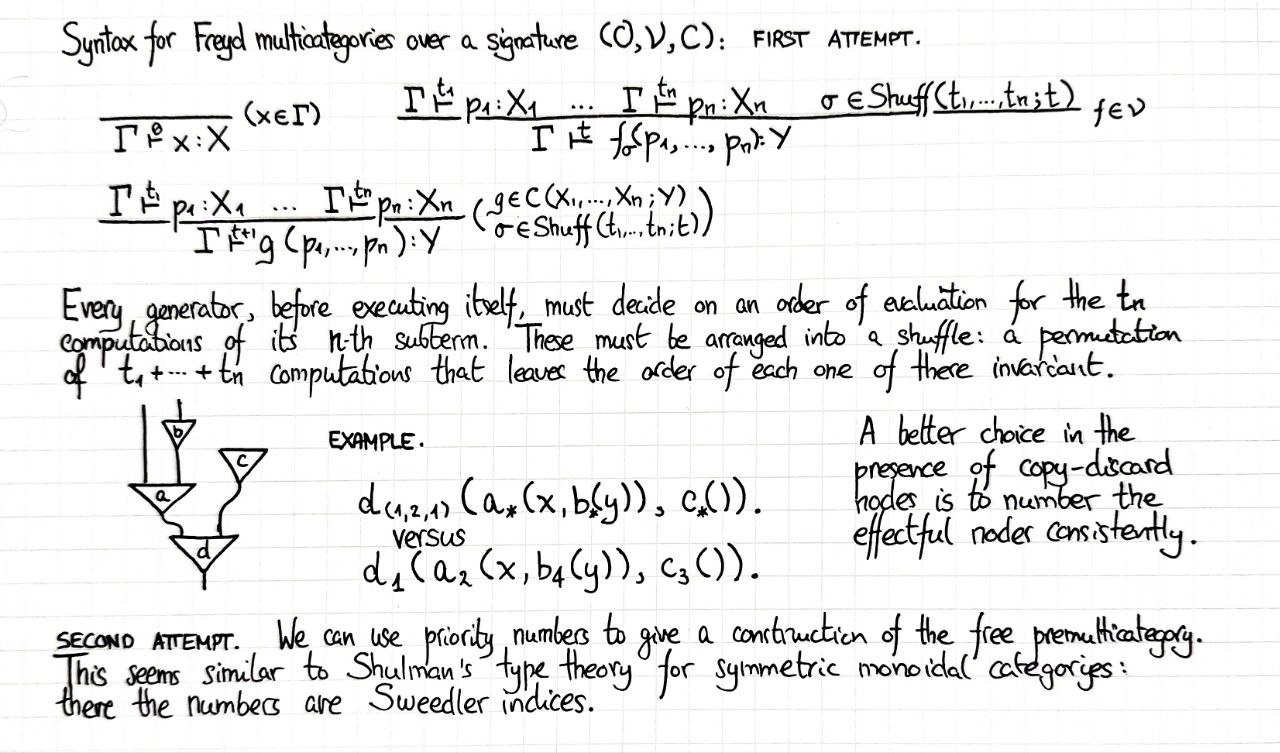 Syntax for Freyd multicategories over a signature (O,V,C): FIRST ATTEMPT.
Γ ⊢^{t₁} p₁:X₁ ... Γ ⊢^{tₙ} pₙ:Xₙ σ∈Shuff(t₁,...,tₙ;t)
Γ ⊢^{0} x:X (x∈Γ) Γ ⊢^{t} f_σ(p₁,..., pₙ):Y f∈V
Γ ⊢^{t₁} p₁:X₁ ... Γ ⊢^{tₙ} pₙ:Xₙ (g∈C(X₁,...,Xₙ;Y)
Γ ⊢^{t+1} g(p₁,...,pₙ):Y σ∈Shuff(t₁,...,tₙ;t))
Every generator, before executing itself, must decide on an order of evaluation for the tₙ
computations of its n-th subterm. These must be arranged into a shuffle: a permutation
of t₁+···+tₙ computations that leaves the order of each one of there invariant.
b
c
a
d
EXAMPLE.
d₍₁,₂,₁₎(a_*(x,b_*(y)), c_*()).
versus
d₁(a₂(x,b₄(y)), c₃()).
A better choice in the
presence of copy-discard
nodes is to number the
effectful nodes consistently.
SECOND ATTEMPT. We can use priority numbers to give a construction of the free premulticategory.
This seems similar to Shulman's type theory for symmetric monoidal categories:
there the numbers are Sweedler indices.